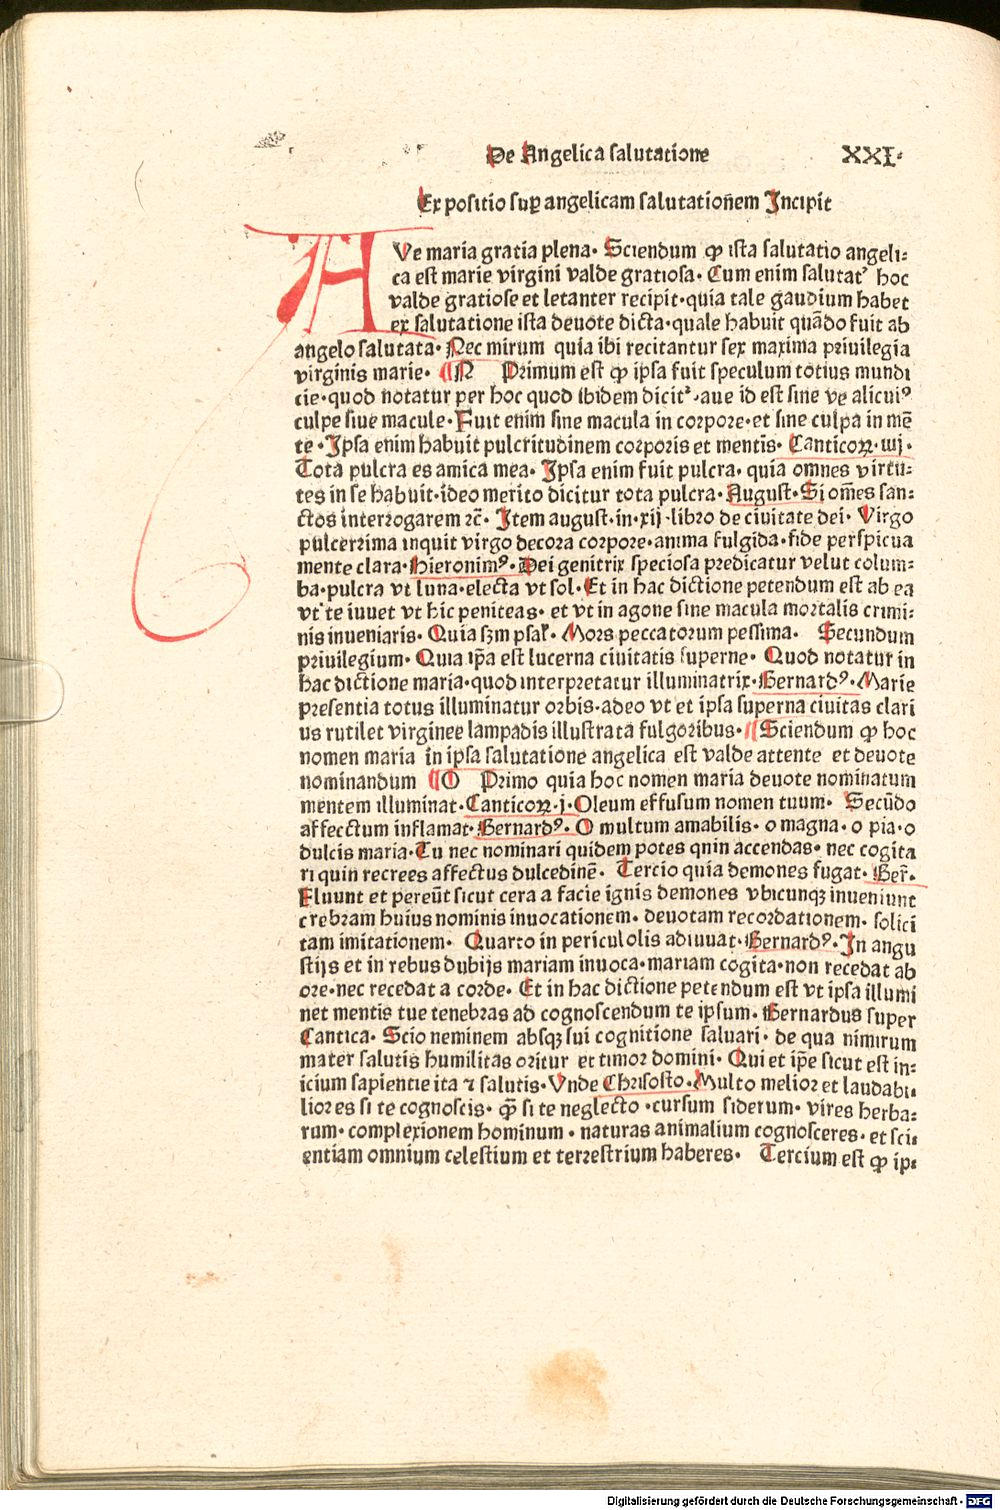 De Angelica salutatione XXI·
Expositio suꝑ angelicam salutatiōnem Incipit
AVe maria gratia plena· Sciendum ꝙ ista salutatio angeli-
ca est marie virgini valde gratiosa· Cum enim salutat᷑ hoc
valde gratiose et letanter recipit·quia tale gaudium habet
ex salutatione ista deuote dicta·quale habuit quādo fuit ab
angelo salutata· Nec mirum quia ibi recitantur sex maxima priuilegia
virginis marie· ¶N Primum est ꝙ ipsa fuit speculum totius mundi
cie·quod notatur per hoc quod ibidem dicit᷑·aue id est sine ve alicuiꝰ
culpe siue macule·Fuit enim sine macula in corpore·et sine culpa in mē
te·Ipsa enim habuit pulcritudinem corporis et mentis· Canticoꝝ·iiij·
Tota pulcra es amica mea· Ipsa enim fuit pulcra· quia omnes virtu-
tes in se habuit·ideo merito dicitur tota pulcra·August·Si om̄es san-
ctos interrogarem ⁊c̄· Item august·in·xij·libro de ciuitate dei· Virgo
pulcerrima inquit virgo decora corpore·anima fulgida·fide perspicua
mente clara·Hieronimꝰ·Dei genitrix speciosa predicatur velut colum-
ba·pulcra vt luna·electa vt sol·Et in hac dictione petendum est ab ea
vt te iuuet vt hic peniteas· et vt in agone sine macula mortalis crimi-
nis inueniaris· Quia sꝫm psal̄· Mors peccatorum pessima· Secundum
priuilegium· Quia ip̄a est lucerna ciuitatis superne· Quod notatur in
hac dictione maria·quod interpretatur illuminatrix·Bernardꝰ·Marie
presentia totus illuminatur orbis·adeo vt et ipsa superna ciuitas clari
us rutilet virginee lampadis illustrata fulgoribus·¶Sciendum ꝙ hoc
nomen maria in ipsa salutatione angelica est valde attente et deuote
nominandum ¶O Primo quia hoc nomen maria deuote nominatum
mentem illuminat·Canticoꝝ·j·Oleum effusum nomen tuum· Secūdo
affecctum inflamat·Bernardꝰ·O multum amabilis·o magna·o pia·o
dulcis maria·Tu nec nominari quidem potes qnin accendas· nec cogita
ri quin recrees affectus dulcedinē· Tercio quia demones fugat· Ber̄·
Fluunt et pereūt sicut cera a facie ignis demones vbicunqꝫ inueniunt
crebram huius nominis inuocationem· deuotam recordationem· solici
tam imitationem· Quarto in periculolis adiuuat·Bernardꝰ·In angu
stijs et in rebus dubijs mariam inuoca·mariam cogita·non recedat ab
ore·nec recedat a corde· Et in hac dictione petendum est vt ipsa illumi
net mentis tue tenebras ad cognoscendum te ipsum· Bernardus super
Cantica· Scio neminem absqꝫ sui cognitione saluari· de qua nimirum
mater salutis humilitas oritur et timor domini· Qui et ip̄e sicut est in-
icium sapientie ita ⁊ salutis·Vnde Chrisosto·Multo melior et laudabi-
lior es si te cognoscis· ꝙ̄ si te neglecto ·cursum siderum· vires herba-
rum· complexionem hominum · naturas animalium cognosceres· et sci-
entiam omnium celestium et terrestrium haberes· Tercium est ꝙ ip-
Digitalisierung gefördert durch die Deutsche Forschungsgemeinschaft - DFG